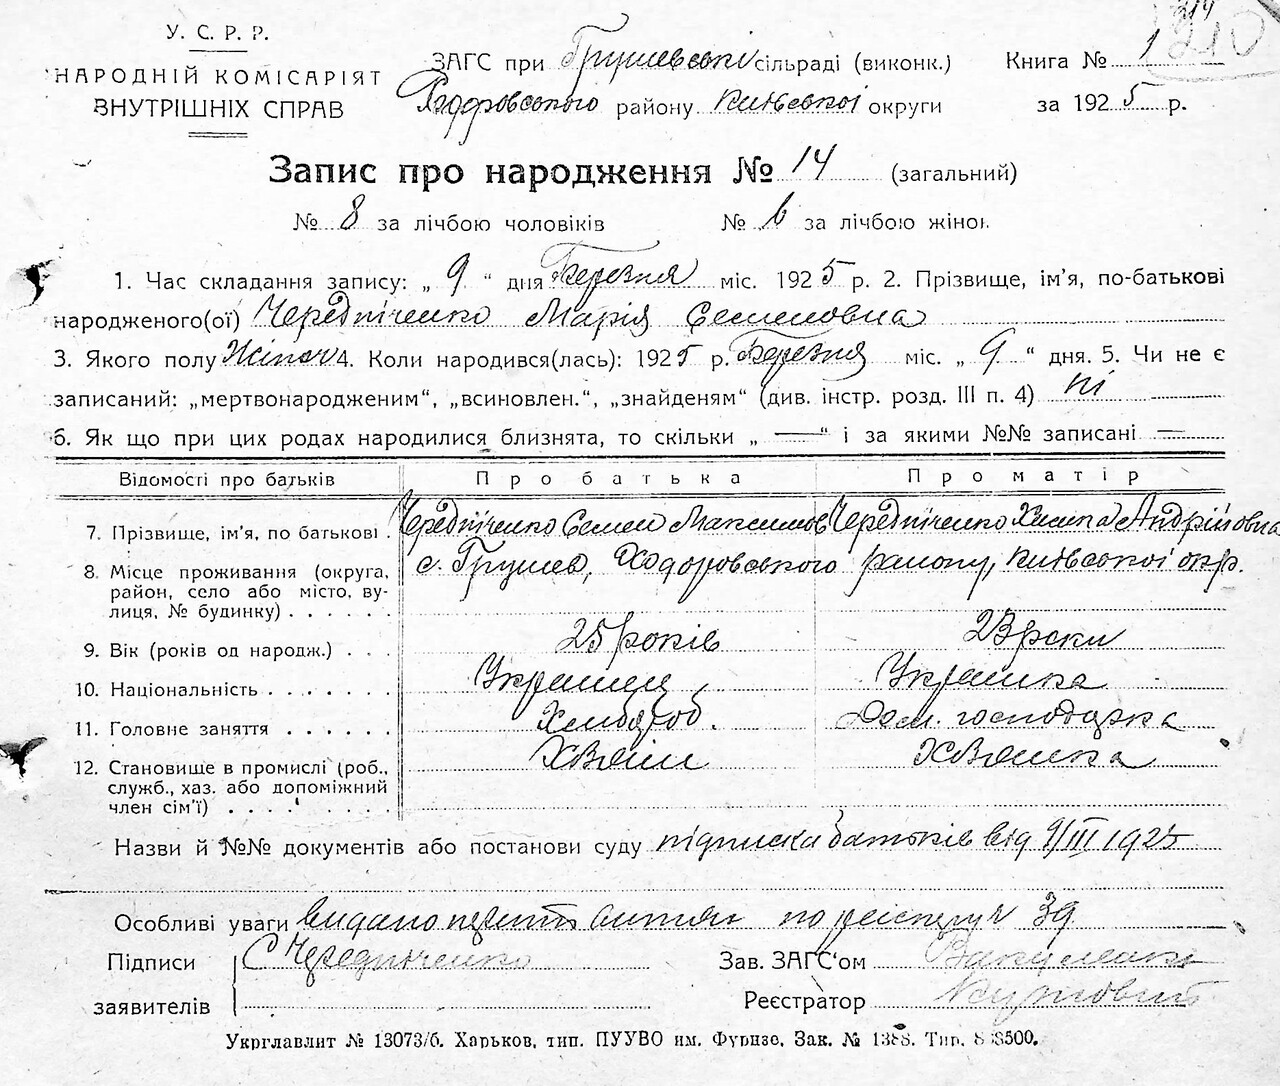 У. С. Р. Р.
НАРОДНІЙ КОМІСАРІЯТ
ВНУТРІШНІХ СПРАВ
ЗАГС при Грушевські сільраді (виконк.) Книга № 1
Ходоровського району Київської округи за 1925 р.
214
210
Запис про народження № 14 (загальний)
№ 8 за лічбою чоловіків № 6 за лічбою жінок
1. Час складання запису: „ 9 “ дня Березня міс. 1925 р. 2. Прізвище, ім’я, по-батькові
народженого(ої) Чередніченко Марія Семеновна
3. Якого полу Жіноч 4. Коли народився(лась): 1925 р. Березня міс. „ 9 “ дня. 5. Чи не є
записаний: „мертвонародженим“, „всиновлен.“, „знайденям“ (див. інстр. розд. III п. 4) ні
6. Як що при цих родах народилися близнята, то скільки „ — “ і за якими №№ записані —
Відомості про батьків Про батька Про матір
7. Прізвище, ім’я, по батькові . Чередніченко Семен Максимов Чередніченко Андрійовна
8. Місце проживання (округа, с. Грушев, Ходоровського району, Київської окр.
район, село або місто, ву-
лиця, № будинку) . . . . . .
9. Вік (років од народж.) . . . 25 років 23 роки
10. Національність . . . . . . . Українец Українка
11. Головне заняття . . . . . . Хлібороб. Дом. господарка
12. Становище в промислі (роб., Хзяїн Хзяйка
служб., хаз. або допоміжний
член сім’ї) . . . . . . . .
Назви й №№ документів або постанови суду підписка батьків від 9/III 1925
Особливі уваги видано витяг по реєстру ч 39
Підписи С Чередниченко Зав. ЗАГС‘ом
заявителів Реєстратор
Укрглавлит № 13073/б. Харьков, тип. ПУУВО им. Фрунзе, Зак. № 1388. Тир.